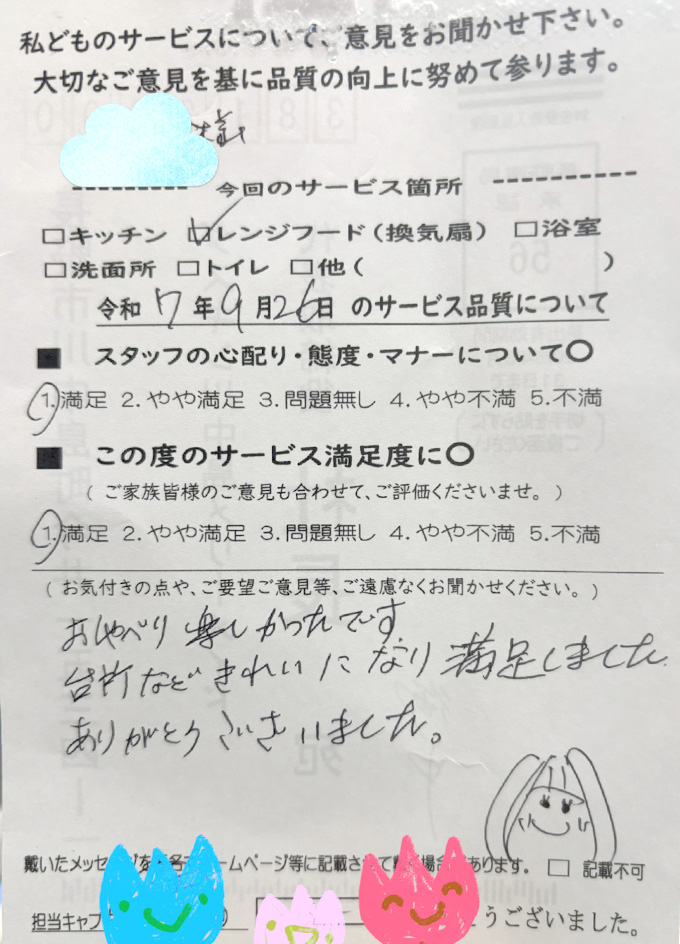 私どものサービスについて、ご意見をお聞かせ下さい。
大切なご意見を基に品質の向上に努めて参ります。
様
今回のサービス箇所
□キッチン ☑レンジフード(換気扇) □浴室
□洗面所 □トイレ □他( )
令和 7 年 9 月 26 日 のサービス品質について
■ スタッフの心配り・態度・マナーについて〇
1.満足 2.やや満足 3.問題無し 4.やや不満 5.不満
■ この度のサービス満足度に〇
( ご家族皆様のご意見も合わせて、ご評価くださいませ。 )
1.満足 2.やや満足 3.問題無し 4.やや不満 5.不満
( お気付きの点や、ご要望ご意見等、ご遠慮なくお聞かせください。 )
おしゃべり 楽しかったです
台所など きれいに なり 満足しました
ありがとうございました。
戴いたメッセージを 名 ームページ等に記載させて 場合 あります。 □ 記載不可
担当キャプ うございました。